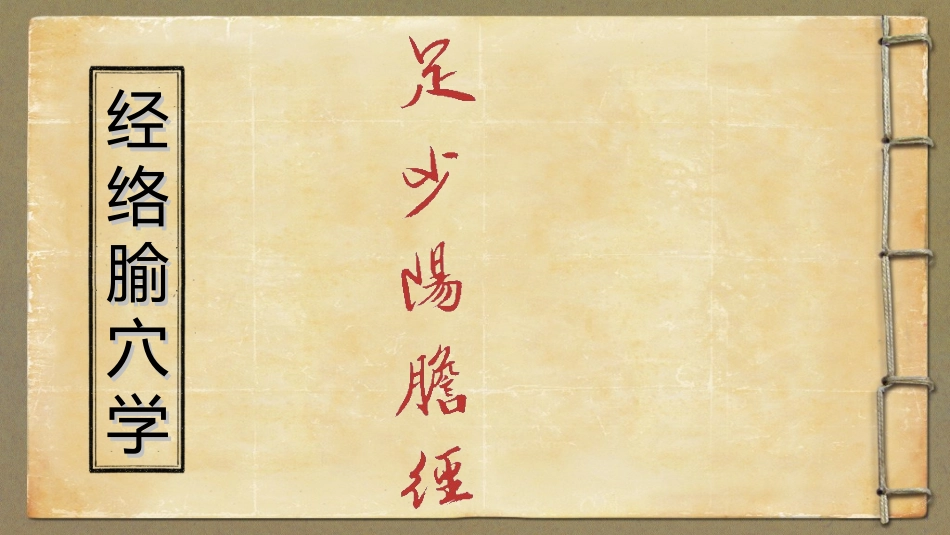 经络腧穴学
足少陽膽經